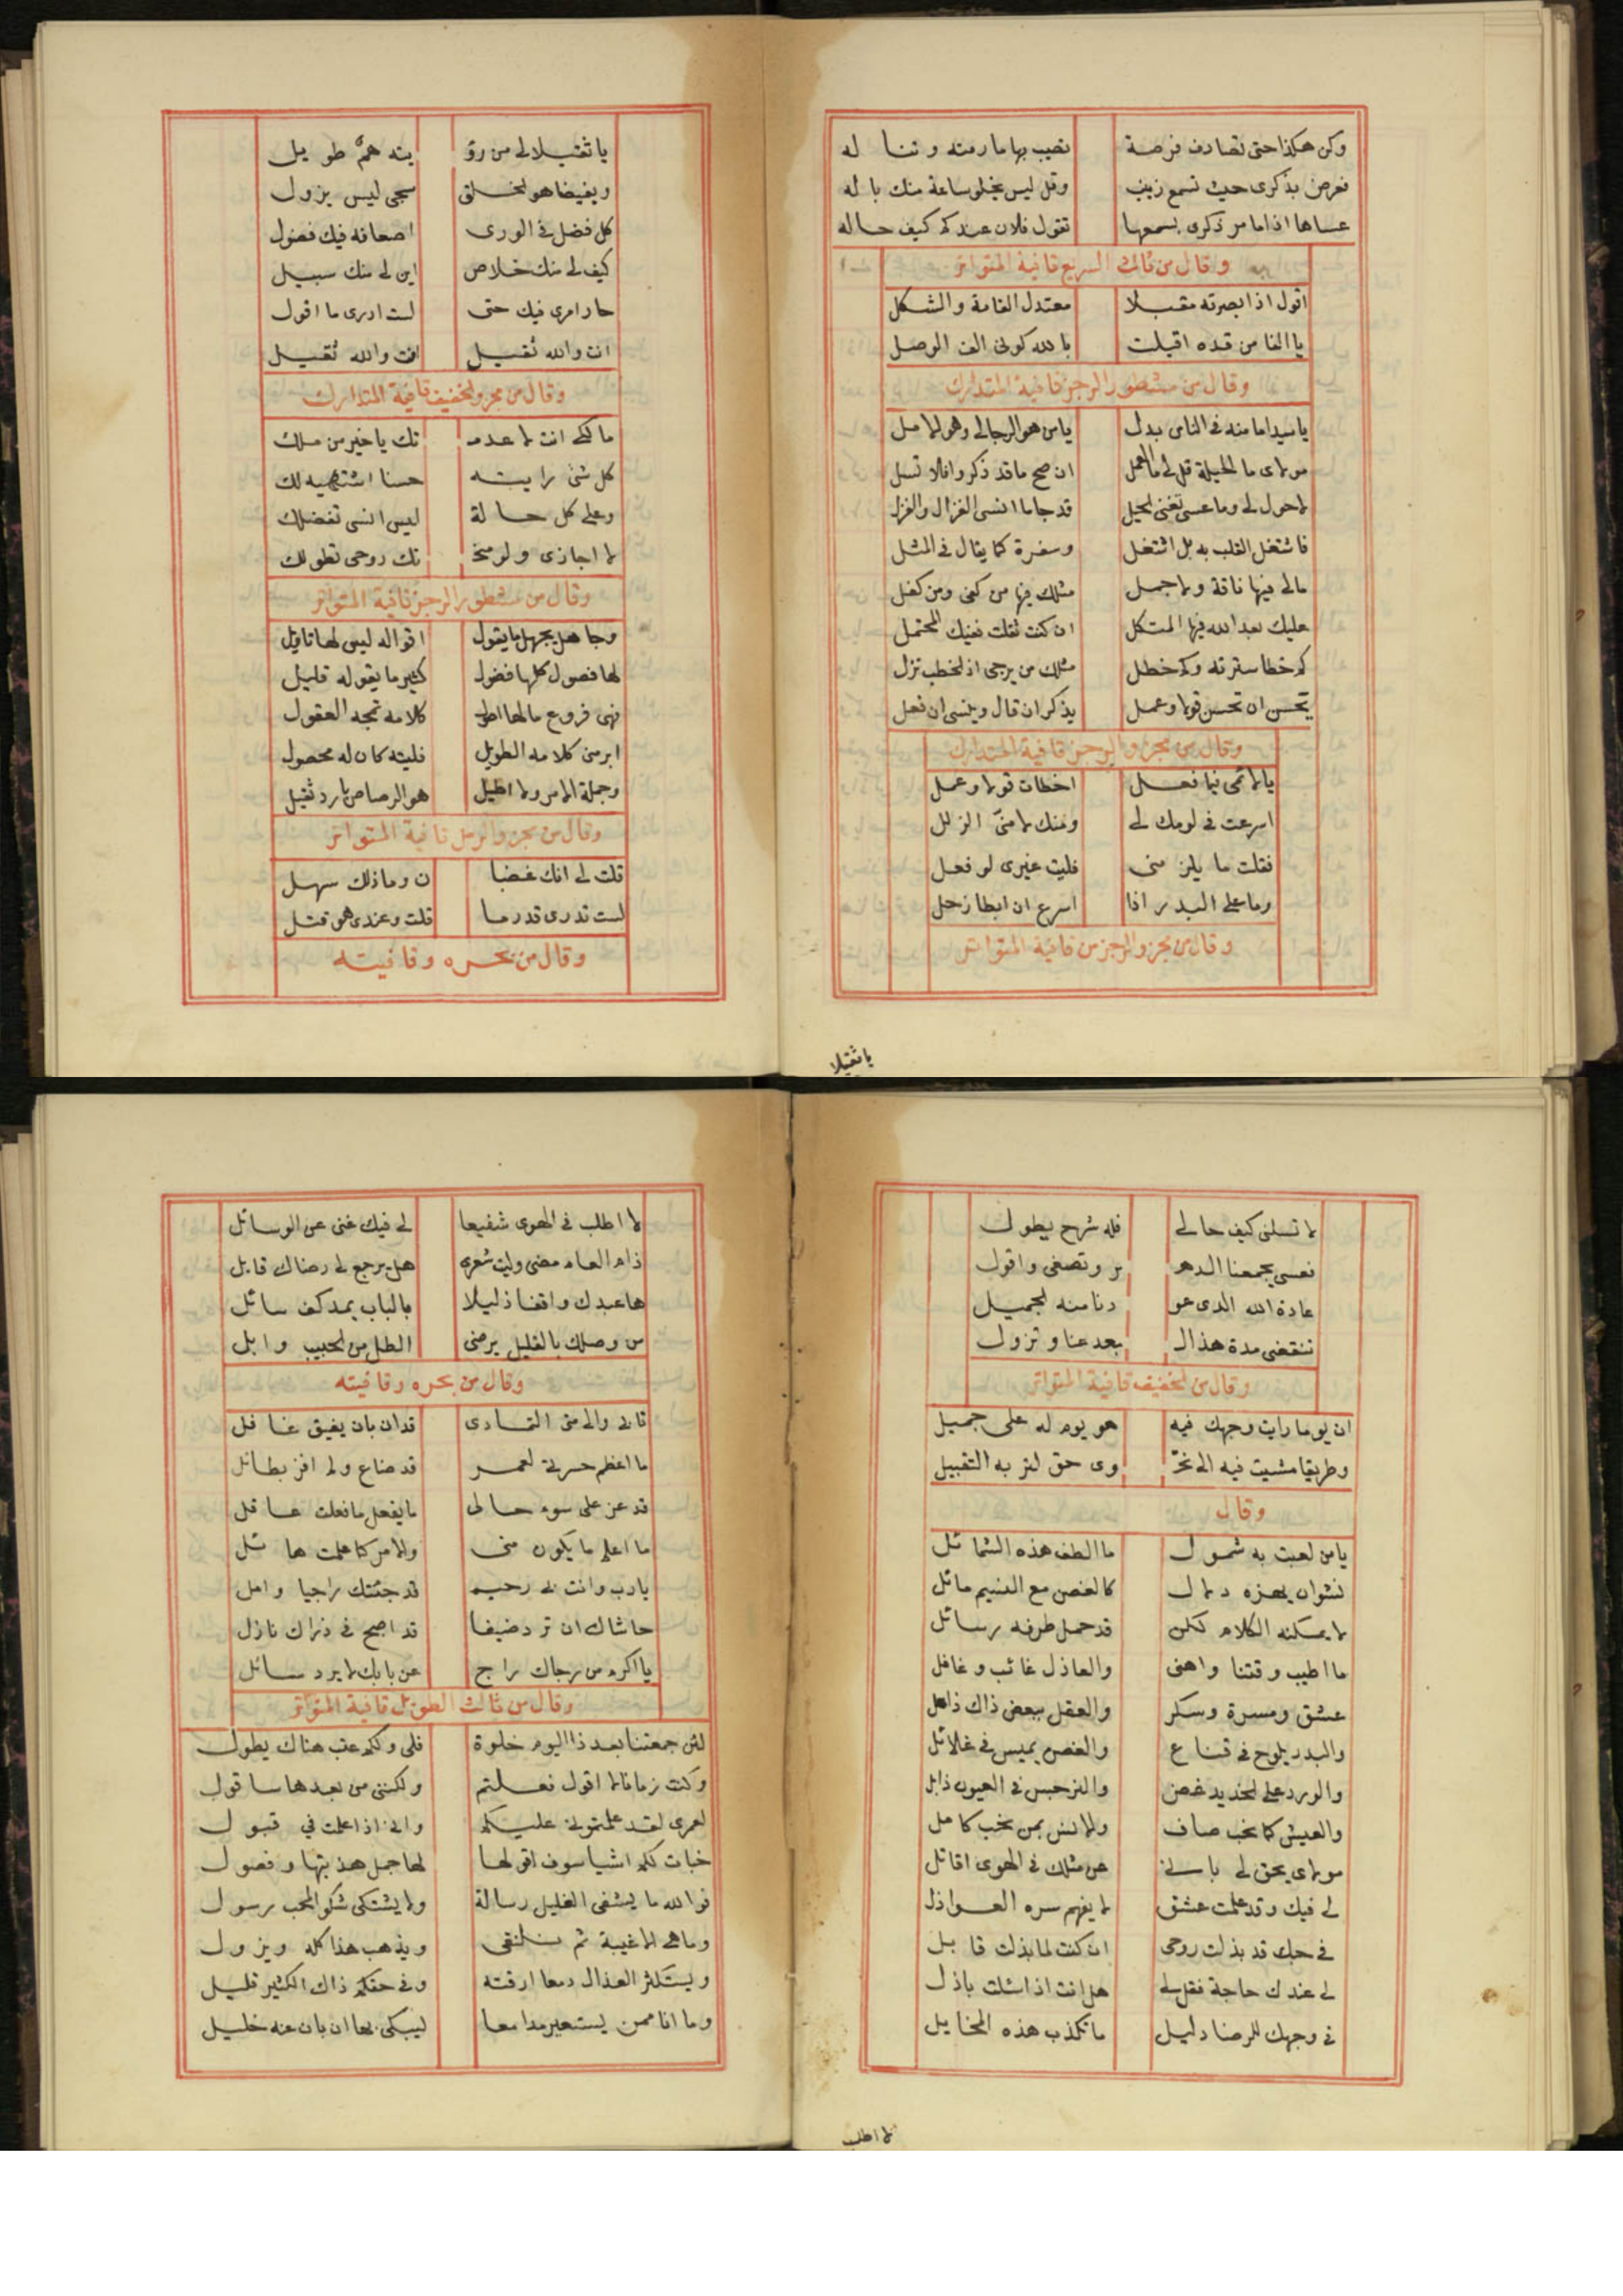 وكن هكذا حتى تصادف فرصة نصيب بها ما رمته وتنا له
فعرض بذكرى حيث تسمع زينب وقل ليس يخلو ساعة منك با له
عساها اذا ما مر ذكرى بسمعها تقول فلان عندكم كيف حاله
وقال من ثالث السريع قافية المتواتر
اقول اذ ابصرته مقبلا معتدل القامة والشكل
يا الفا من قده اقبلت بالله كونى الف الوصل
وقال من مشطور الرجز قافية المتدارك
يا سيدا ما منه فى الناس بدل يا من هو الرجا لى وهو الامل
مولاى ما الحيلة قل لى ما العمل ان صح ما قد ذكروا فلا تسل
لاحول لى وما عسى تغنى الحيل قد جا ما انسى الغزال والغزل
فاشتغل القلب به بل اشتغل وسفرة كما يقال فى المثل
مالى فيها ناقة ولا جمل مثلك فيها من كفى ومن كفل
عليك بعد الله فيها المتكل ان كنت ثقلت فعنيك المحتمل
كم خطا سترته وكم خطل مثلك من يرجى اذ الخطب نزل
تحسن ان تحسن قولا وعمل يذكر ان قال وينسى ان فعل
وقال من مجزو الرجز قافية المتدارك
يا لائمى فيما فعل اخطات قولا وعمل
اسرعت فى لومك لى ومنك لا منى الزلل
فقلت ما يلز منى فليت غيرى لو فعل
وما على البدر اذا اسرع ان ابطا زحل
وقال من مجزو الرجز من قافية المتواتر
يا ثقيلا
يا ثقيلا لى من رؤ يته هم طويل
وبغيضا هو لخلقى سجى ليس يزول
كل فضل فى الورى اضعافه فيك فضول
كيف لى منك خلاص اين لى منك سبيل
حار امرى فيك حتى لست ادرى ما اقول
انت والله ثقيل انت والله ثقيل
وقال من مجزو الخفيف قافية المتدارك
مالكى انت لا عدمـ تك يا خير من ملك
كل شئ رايته حسنا اشتهيه لك
وعلى كل حالة ليس انسى تفضلك
لا اجازى ولو منحـ تك روحى تطولك
وقال من مشطور الرجز قافية المتواتر
وجاهل يجهل ما يقول اقواله ليس لها تاويل
لها فصول كلها فضول كثير ما يقوله قليل
فهى فروع ما لها اصول كلامه تمجه العقول
ابرمنى كلامه الطويل فليته كان له محصول
وجملة الامر ولا اطيل هو الرصاص بارد ثقيل
وقال من مجزو الرمل قافية المتواتر
قلت لى انك غضبا ن وما ذلك سهل
لست تدرى قدر ما قلت وعندى هو قتل
وقال من بحره وقافيته
لا تسلنى كيف حالى فله شرح يطول
فعسى يجمعنا الدهـ ر وتصغى واقول
عادة الله الذى عو دنا منه الجميل
تنقضى مدة هذا الـ بعد عنا وتزول
وقال من الخفيف قافية المتواتر
ان يوما رايت وجهك فيه هو يوم له على جميل
وطريقا مشيت فيه الى نحـ وى حق لتر به التقبيل
وقال
يا من لعبت به شمول ما الطف هذه الشمائل
نشوان يهزه دلال كالغصن مع النسيم مائل
لا يمكنه الكلام لكن قد حمل طرفه رسائل
ما اطيب وقتنا واهنى والعاذل غائب وغافل
عشق ومسرة وسكر والعقل ببعض ذاك ذاهل
والبدر يلوح فى قناع والغصن يميس فى غلائل
والورد على الخديد غض والنرجس فى العيون ذابل
والعيش كما نحب صاف والانس بمن نحب كامل
مولاى يحق لى بانى عن مثلك فى الهوى اقاتل
لى فيك وقد علمت عشق لا يفهم سره العواذل
فى حبك قد بذلت روحى ان كنت لما بذلت قابل
لى عندك حاجة فقل لى هل انت اذا سئلت باذل
فى وجهك للرضا دليل ما تكذب هذه المخايل
لا اطلب
لا اطلب فى الهوى شفيعا لى فيك غنى عن الوسائل
ذا العام مضى وليت شعرى هل يرجع لى رضاك قابل
ها عبدك واقفا ذليلا بالباب يمد كف سائل
من وصلك بالقليل يرضى الطل من الحبيب وابل
وقال من بحره وقافيته
قالى والى متى التمادى قد ان بان يفيق غافل
ما اعظم حسرتى لعمر قد ضاع ولم افز بطائل
قد عز على سوء حالى ما يفعل ما فعلت عاقل
ما اعلم ما يكون منى والامر كما علمت هائل
يا رب وانت لى رحيم قد جئتك راجيا وامل
حاشاك ان ترد ضيفا قد اصبح فى ذراك نازل
يا اكرم من رجاك راج عن بابك لا يرد سائل
وقال من ثالث الطويل قافية المتواتر
لئن جمعتنا بعد ذا اليوم خلوة فلى ولكم عتب هناك يطول
وكنت زمانا لا اقول فعلتم ولكننى من بعدها سا قول
لعمرى لقد علمتمونى عليكم وانى اذا علمت فى قبول
خبات لكم اشيا سوف اقولها لها جمل هذبتها وفصول
فوالله ما يشفى الغليل رسالة ولا يشتكى شكو المحب رسول
وما هى الا غيبة ثم نلتقى ويذهب هذا كله ويزول
ويستكثر العذال دمعا ارقته وفى حقكم ذاك الكثير قليل
وما انا ممن يستعير مدامعا ليبكى بها ان بان عنه خليل